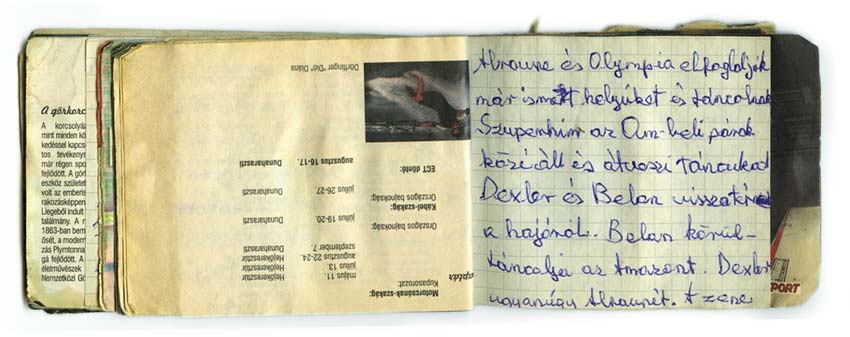 A görkorc
A korcsolyáz
mint minden kö
kedéssel kapcs
tos tevékenys
már régen spo
fejlődött. A gör
eszköz születet
volt az emberis
rakozásképpen
Liegeből indult
találmány. A n
1863-ban bem
ősét, a modern
zás Plymtonna
gá fejlődött. A
életművészek
Nemzetközi Gö
aptár
Motorcsónak-szakág:
Kupasorozat: május 11. Hejőkeresztúr
július 13. Hejőkeresztúr
augusztus 22-24. Hejőkeresztúr
szeptember 7. Dunaharaszti
Országos bajnokság: július 19-20. Dunaharaszti
Kábel-szakág:
Országos bajnokság: július 26-27. Dunaharaszti
ECT döntő: augusztus 16-17. Dunaharaszti
Dörflinger "Dió" Diána
Alraune és Olympia elfoglalják
már ismert helyüket és táncolnak
Szupenhim az Om-beli párok
közé áll és átveszi táncukat
Dexler és Belan visszatér
a hajóról. Belan körül-
táncolja az Amazont. Dexler
ugyanúgy Alraunét. A zene
PORT